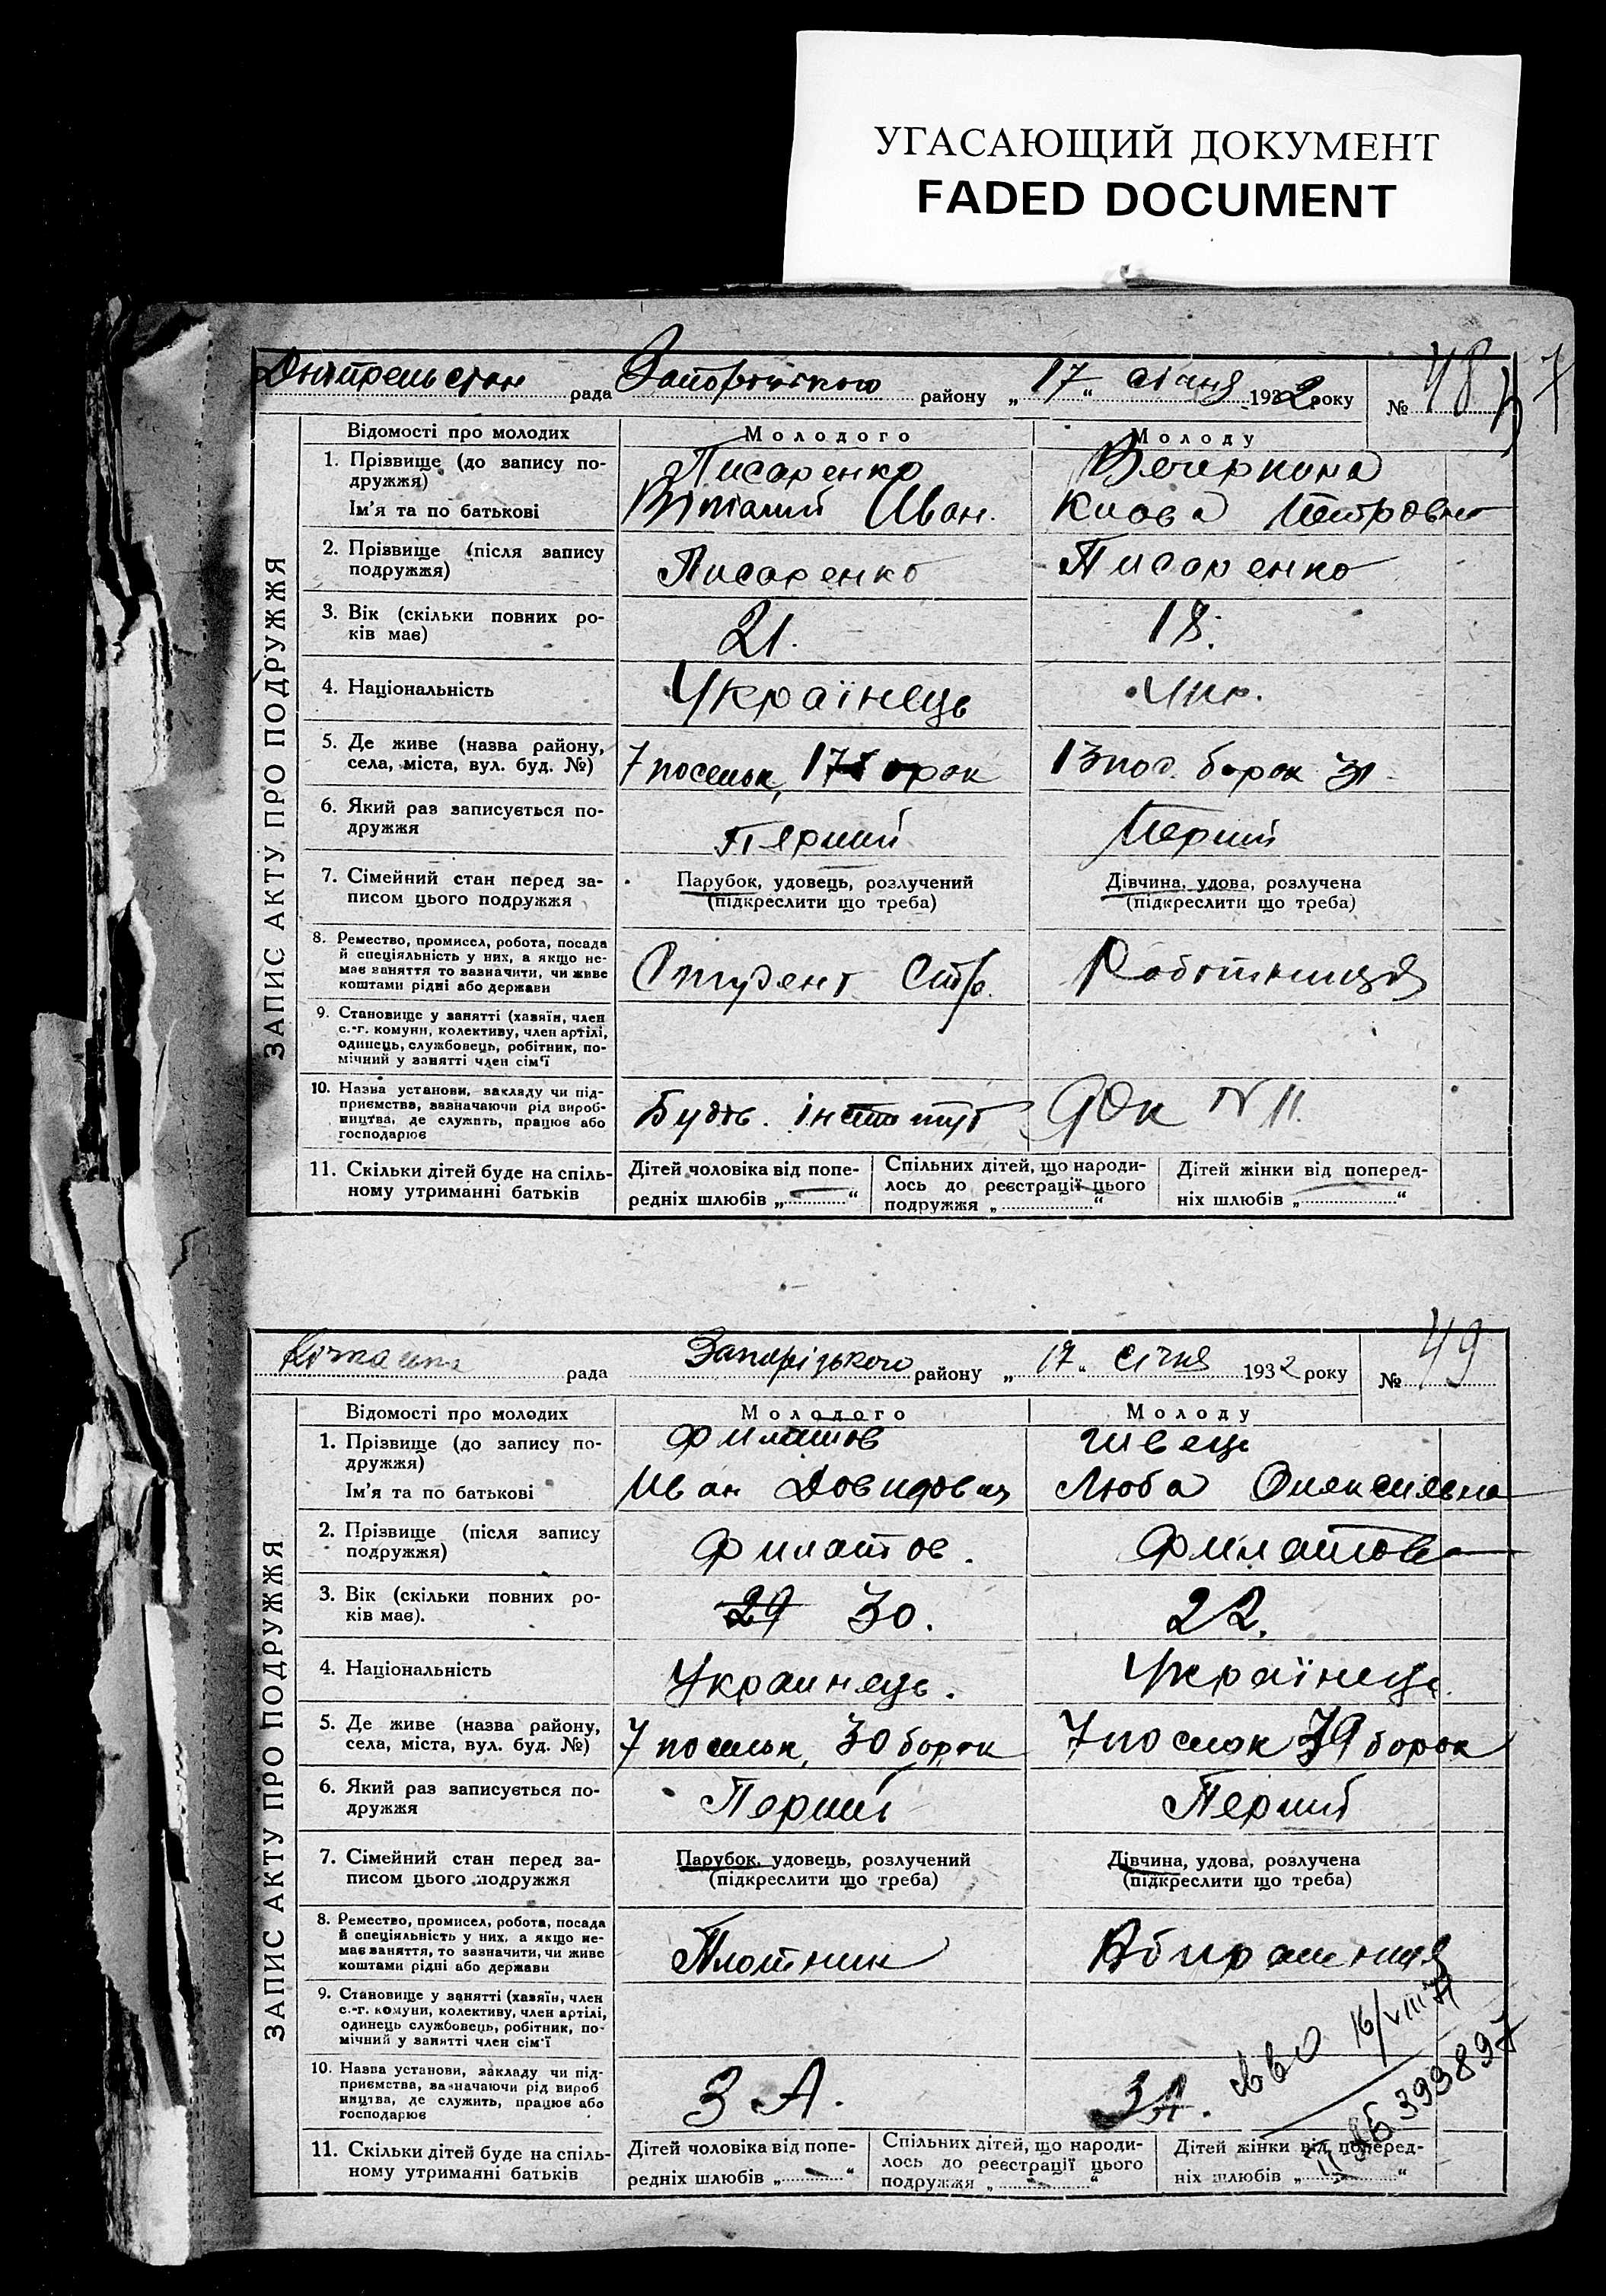 УГАСАЮЩИЙ ДОКУМЕНТ
FADED DOCUMENT
ЗАПИС АКТУ ПРО ПОДРУЖЖЯ
рада Запорізького району „17“ січня 1932 року № 48
Відомості про молодих Молодого Молоду
1. Прізвище (до запису по-
дружжя) Писаренко
Ім'я та по батькові Віталий Иван. Петровна
2. Прізвище (після запису
подружжя) Писаренко Писаренко
3. Вік (скільки повних ро-
ків має) 21. 18.
4. Національність Українець Укр.
5. Де живе (назва району,
села, міста, вул. буд. №) 7 поселок, 17 барак 13 пос. барак 31
6. Який раз записується по-
дружжя Перший Перший
7. Сімейний стан перед за-
писом цього подружжя
Парубок, удовець, розлучений
(підкреслити що треба)
Дівчина, удова, розлучена
(підкреслити що треба)
8. Ремество, промисел, робота, посада
й спеціяльність у них, а якщо не-
має заняття то зазначити, чи живе
коштами рідні або держави
Студент Роботниця
9. Становище у занятті (хазяїн, член
с.-г. комуни, колективу, член артілі,
одинець, службовець, робітник, по-
мічний у занятті член сім'ї
10. Назва установи, закладу чи під-
приємства, зазначаючи рід вироб-
ництва, де служить, працює або
господарює
Будів. інститут № 11.
11. Скільки дітей буде на спіль-
ному утриманні батьків
Дітей чоловіка від попе-
редніх шлюбів „ — “
Спільних дітей, що народи-
лось до реєстрації цього
подружжя „ — “
Дітей жінки від поперед-
ніх шлюбів „ — “
ЗАПИС АКТУ ПРО ПОДРУЖЖЯ
рада Запорізького району „17“ січня 1932 року № 49
Відомості про молодих Молодого Молоду
1. Прізвище (до запису по-
дружжя) Филатов Швець
Ім'я та по батькові Иван Довидович Люба Олексиевна
2. Прізвище (після запису
подружжя) Филатов. Филатова
3. Вік (скільки повних ро-
ків має). 29 30. 22.
4. Національність Украинець. Українець.
5. Де живе (назва району,
села, міста, вул. буд. №) 7 поселок, 30 барак 7 поселок 39 барак
6. Який раз записується по-
дружжя Перший Перший
7. Сімейний стан перед за-
писом цього подружжя
Парубок, удовець, розлучений
(підкреслити що треба)
Дівчина, удова, розлучена
(підкреслити що треба)
8. Ремество, промисел, робота, посада
й спеціяльність у них, а якщо не-
має заняття, то зазначити, чи живе
коштами рідні або держави
Плотник
9. Становище у занятті (хазяїн, член
с.-г. комуни, колективу, член артілі,
одинець службовець, робітник, по-
мічний у занятті член сім'ї
10. Назва установи, закладу чи під-
приємства, зазначаючи рід вироб
ництва, де служить, працює або
господарює
З А. З А.
16/VIII 71
II ЯБ 399897
11. Скільки дітей буде на спіль-
ному утриманні батьків
Дітей чоловіка від попе-
редніх шлюбів „ — “
Спільних дітей, що народи-
лось до реєстрації цього
подружжя „ — “
Дітей жінки від поперед-
ніх шлюбів „ — “